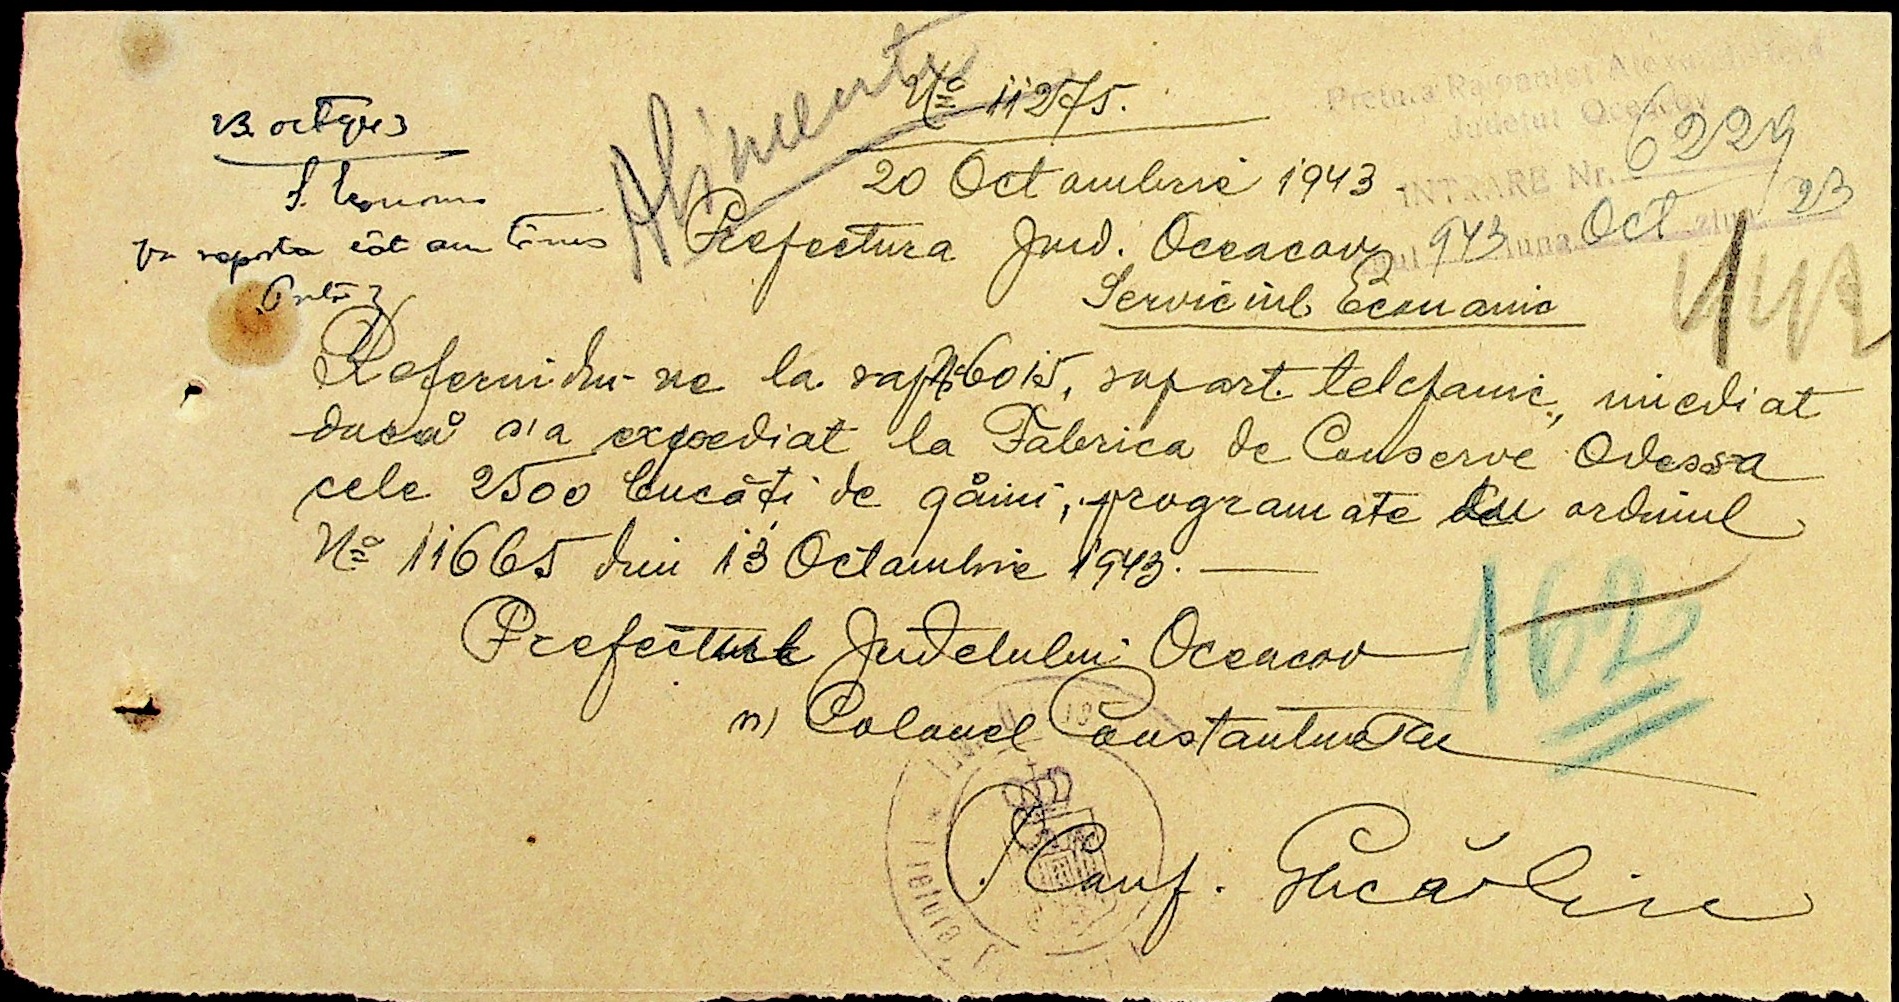 Alimente
Nº 11275.
Pretura Raionului Alexandrfeld
Judetul Oceacov
INTRARE Nr. 6229
943 luna Oct ziua 23
23 oct 943
S. Econom
Va raporta cât am trimis
20 Octombrie 1943
Prefectura Jud. Oceacov
Serviciul Economic
Referindu-ne la rap. Nº 6015, raport. telefonic, imediat
dacă s'a expediat la Fabrica de Conserve Odessa
cele 2500 bucăți de găini, programate cu ordinul
Nº 11665 din 13 Octombrie 1943. —
Prefectul Judetului Oceacov
m) Colonel Constantinescu
162
p. Conf.